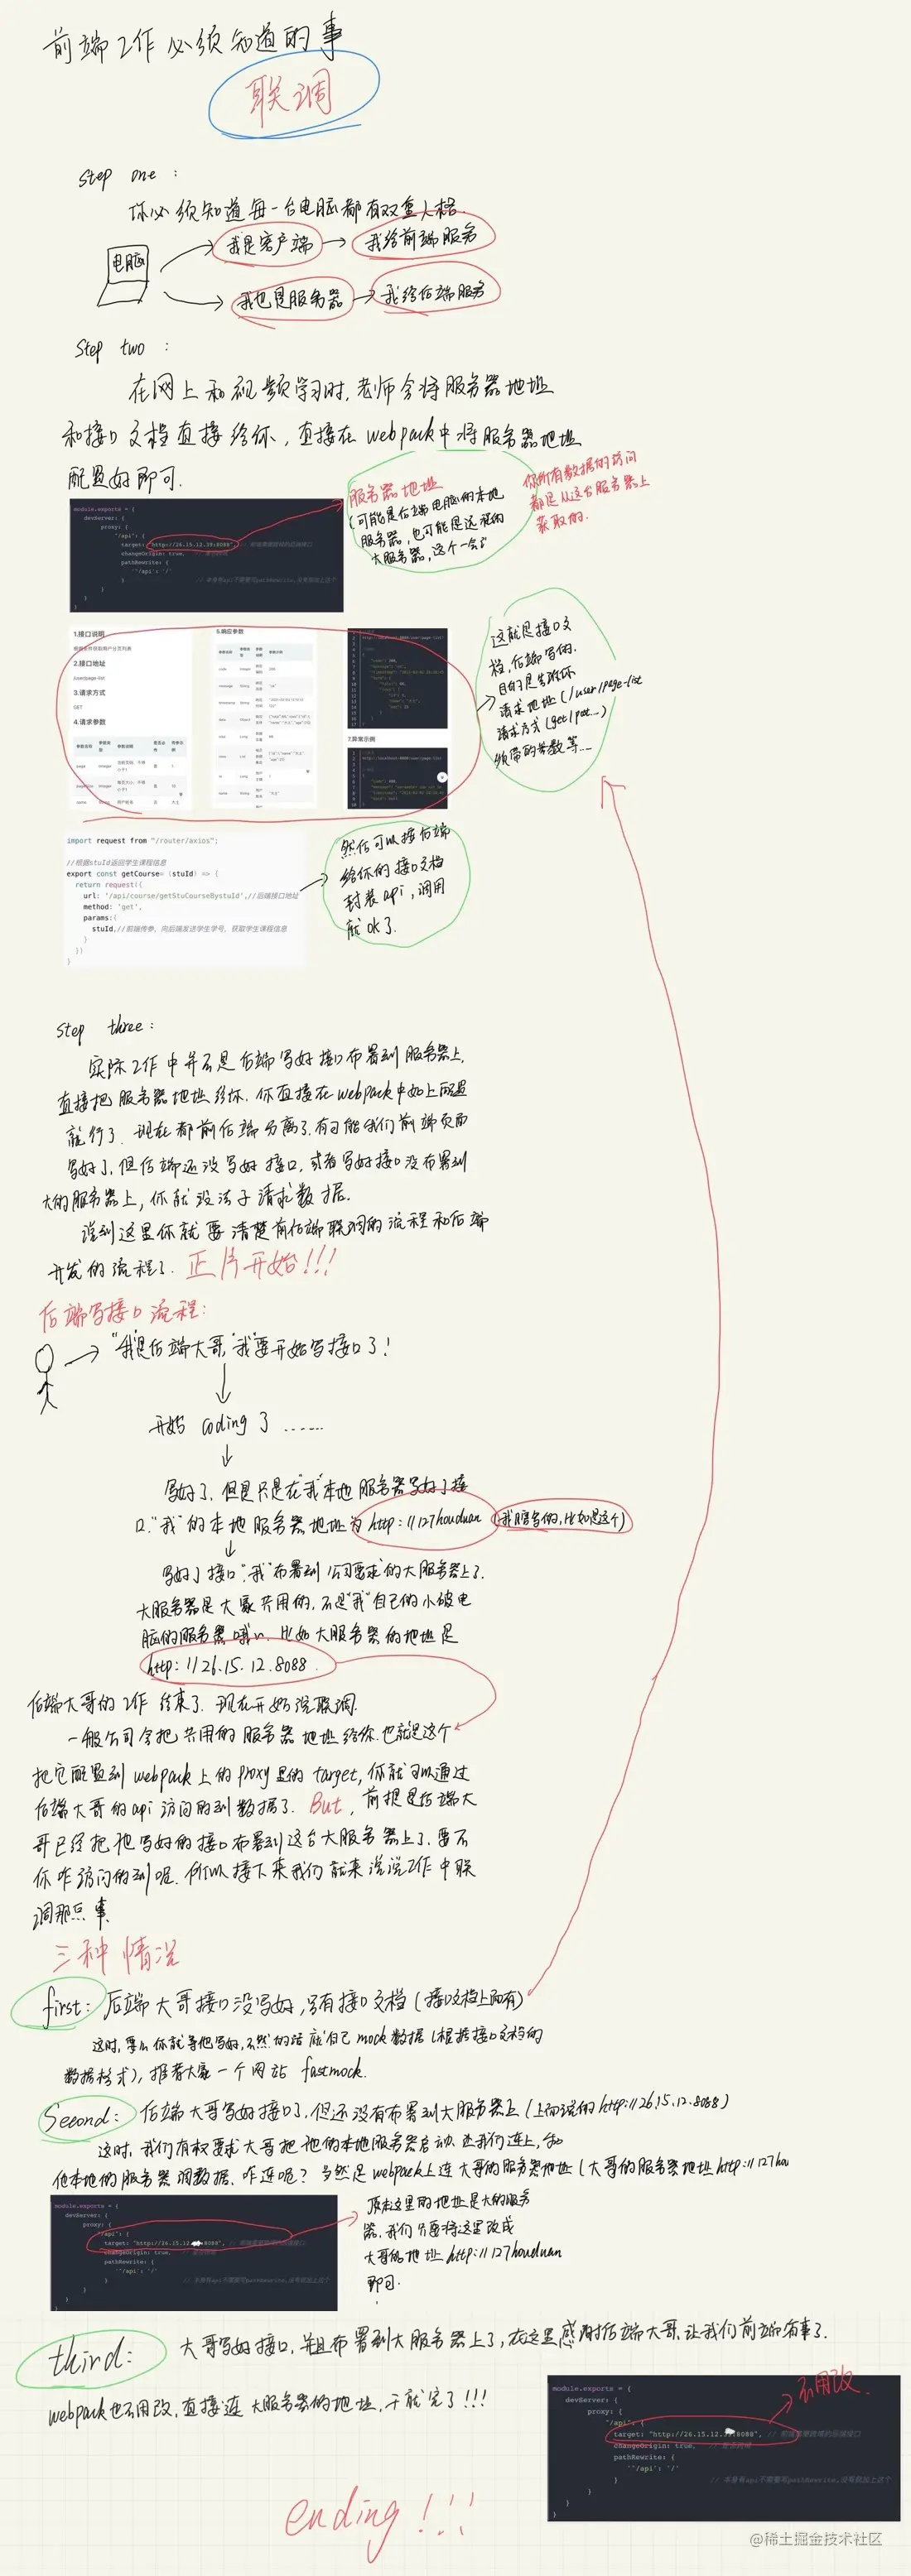 前端工作必须知道的事
联调
step one :
你必须知道每一台电脑都有双重人格.
电脑
我是客户端
我给前端服务
我也是服务器
我给后端服务
Step two :
在网上和视频学习时,老师会将服务器地址
和接口文档直接给你,直接在webpack中将服务器地址
配置好即可.
服务器地址
(可能是后端电脑的本地
服务器,也可能是远程的
大服务器,这个一会说
你所有数据的访问
都是从这台服务器上
获取的.
module.exports = {
devServer: {
proxy: {
"/api": {
target: "http://26.15.12.39:8088",
changeOrigin: true,
pathRewrite: {
'^/api': '/'
// 本身有api不需要写pathRewrite,没有就加上这个
}
}
}
}
1.接口说明
根据条件获取用户分页列表
2.接口地址
/user/page-list
3.请求方式
GET
4.请求参数
5.响应参数
7.异常示例
这就是接口文
档,后端写的.
目的是告诉你
请求地址(/user/page-list
请求方式(get/pot...)
须带的参数等...
import request from "/router/axios";
//根据stuId返回学生课程信息
export const getCourse= (stuId) => {
return request({
url: '/api/course/getStuCourseBystuId',//后端接口地址
method: 'get',
params:{
stuId,//前端传参, 向后端发送学生学号, 获取学生课程信息
}
})
}
然后可以按后端
给你的接口文档
封装api,调用
就ok了.
step three :
实际工作中并不是后端写好接口布署到服务器上,
直接把服务器地址给你.你直接在webpack中如上配置
就行了.现在都前后端分离了.有可能我们前端页面
写好了,但后端还没写好接口,或者写好接口没布署到
大的服务器上,你就没法子请求数据.
说到这里你就要清楚前后端联调的流程和后端
开发的流程了. 正片开始!!!
后端写接口流程:
"我"是后端大哥,"我"要开始写接口了!
开始 coding 了 ......
写好了,但是只是在"我"本地服务器写好了接
口."我"的本地服务器地址为http://127houduan (我瞎写的,比如是这个)
写好了接口,"我"布署到公司要求的大服务器上了.
大服务器是大家共用的,不是"我"自己的小破电
脑的服务器哦~. 比如大服务器的地址是
http://26.15.12.8088.
后端大哥的工作结束了.现在开始说联调.
一般公司会把共用的服务器地址给你.也就是这个
把它配置到webpack上的proxy里的target,你就可以通过
后端大哥的api访问的到数据了. But, 前提是后端大
哥已经把他写好的接口布署到这台大服务器上了.要不
你咋访问的到呢.所以接下来我们就来说说工作中联
调那点事.
三种情况
first: 后端大哥接口没写好,只有接口文档(接口文档上面有)
这时,要么你就等他写好,不然的话就自己mock数据(根据接口文档的
数据格式),推荐大家一个网站 fastmock.
Second: 后端大哥写好接口了,但还没有布署到大服务器上(上面说的http://26.15.12.8088)
这时,我们有权要求大哥把他的本地服务器启动.让我们连上,和
他本地的服务器调数据.咋连呢?当然是webpack上连大哥的服务器地址(大哥的服务器地址http://127hou
module.exports = {
devServer: {
proxy: {
"/api": {
target: "http://26.15.12
changeOrigin: true,
pathRewrite: {
'^/api': '/'
}
// 本身有api不需要写pathRewrite,没有就加上这个
}
}
原本这里的地址是大的服务
器.我们只要将这里改成
大哥的地址http://127houduan
即可.
third: 大哥写好接口,并且布署到大服务器上了,在这里感谢后端大哥,让我们前端省事了.
webpack也不用改,直接连大服务器的地址,干就完了!!!
不用改.
module.exports = {
devServer: {
proxy: {
"/api": {
target: "http://26.15.12.39:8088",
changeOrigin: true,
pathRewrite: {
'^/api': '/'
}
// 本身有api不需要写pathRewrite,没有就加上这个
}
}
}
ending!!!
@稀土掘金技术社区